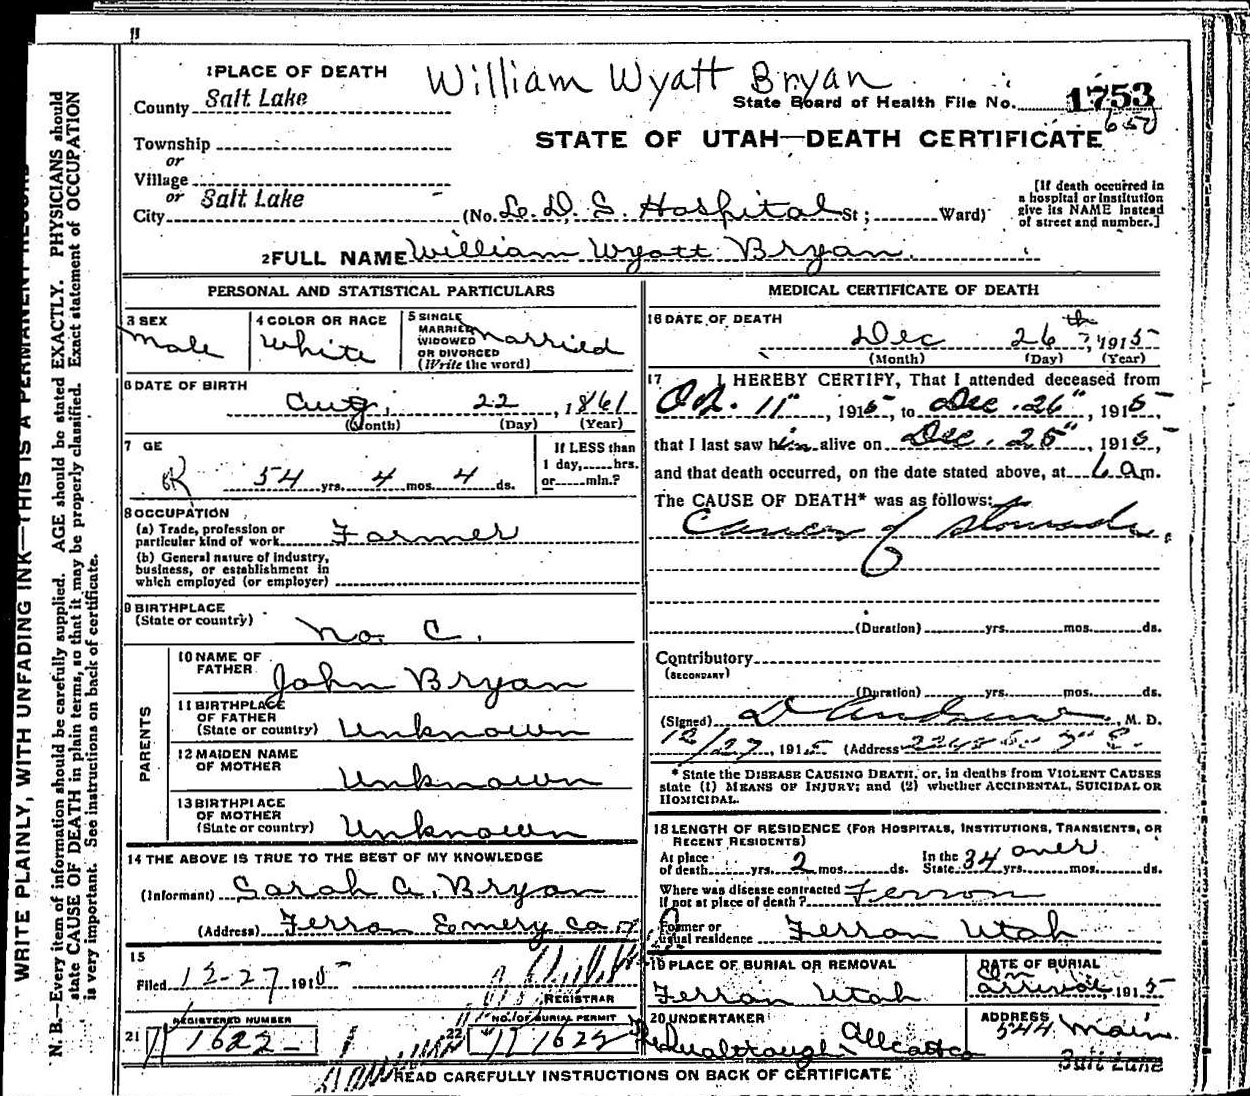 1 PLACE OF DEATH
William Wyatt Bryan
County Salt Lake
State Board of Health File No. 1753
650
Township
or
Village
or
City Salt Lake
STATE OF UTAH—DEATH CERTIFICATE
(No. L. D. S. Hospital St ; Ward)
[If death occurred in
a hospital or institution
give its NAME instead
of street and number.]
2 FULL NAME William Wyatt Bryan.
PERSONAL AND STATISTICAL PARTICULARS
3 SEX
Male
4 COLOR OR RACE
White
5 SINGLE
MARRIED
WIDOWED
OR DIVORCED
(Write the word)
Married
6 DATE OF BIRTH
Aug. 22, 1861
(Month) (Day) (Year)
7 GE
OK 54 yrs. 4 mos. 4 ds.
If LESS than
1 day, hrs.
or min.?
8 OCCUPATION
(a) Trade, profession or
particular kind of work Farmer
(b) General nature of industry,
business, or establishment in
which employed (or employer)
9 BIRTHPLACE
(State or country)
No. C.
PARENTS
10 NAME OF
FATHER
John Bryan
11 BIRTHPLACE
OF FATHER
(State or country) Unknown
12 MAIDEN NAME
OF MOTHER
Unknown
13 BIRTHPLACE
OF MOTHER
(State or country) Unknown
14 THE ABOVE IS TRUE TO THE BEST OF MY KNOWLEDGE
(Informant) Sarah A. Bryan
(Address) Ferron Emery Co
15
Filed 12-27 1915
REGISTRAR
REGISTERED NUMBER
21 1622
NO. OF BURIAL PERMIT
22 1622
MEDICAL CERTIFICATE OF DEATH
16 DATE OF DEATH
Dec 26th, 1915
(Month) (Day) (Year)
17 I HEREBY CERTIFY, That I attended deceased from
Oct. 11", 1915, to Dec. 26", 1915,
that I last saw him alive on Dec. 25", 1915,
and that death occurred, on the date stated above, at 6 am.
The CAUSE OF DEATH* was as follows:
Cancer of stomach.
(Duration) yrs. mos. ds.
Contributory
(SECONDARY)
(Duration) yrs. mos. ds.
(Signed) M. D.
12/27, 1915 (Address
* State the DISEASE CAUSING DEATH, or, in deaths from VIOLENT CAUSES
state (1) MEANS OF INJURY; and (2) whether ACCIDENTAL, SUICIDAL OR
HOMICIDAL.
18 LENGTH OF RESIDENCE (FOR HOSPITALS, INSTITUTIONS, TRANSIENTS, OR
RECENT RESIDENTS)
At place
of death yrs. 2 mos. ds.
In the
State over 34 yrs. mos. ds.
Where was disease contracted
If not at place of death? Ferron
Former or
usual residence Ferron Utah
19 PLACE OF BURIAL OR REMOVAL
Ferron Utah
DATE OF BURIAL
On
arrival, 1915
20 UNDERTAKER
ADDRESS
544 Main
Salt Lake
READ CAREFULLY INSTRUCTIONS ON BACK OF CERTIFICATE
WRITE PLAINLY, WITH UNFADING INK—THIS IS A PERMANENT RECORD
N. B.—Every item of information should be carefully supplied. AGE should be stated EXACTLY. PHYSICIANS should
state CAUSE OF DEATH in plain terms, so that it may be properly classified. Exact statement of OCCUPATION
is very important. See instructions on back of certificate.